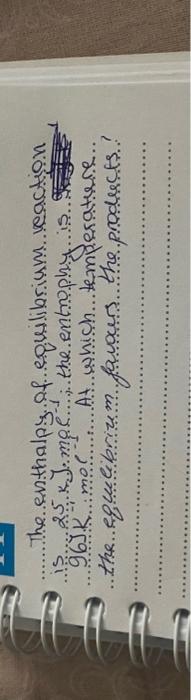 The enthalpy of equilibrium reaction
is 25 kJ mol⁻¹ the entrophy is
96JK⁻¹ mol⁻¹ At which temperature
the equilibrium favours the products?